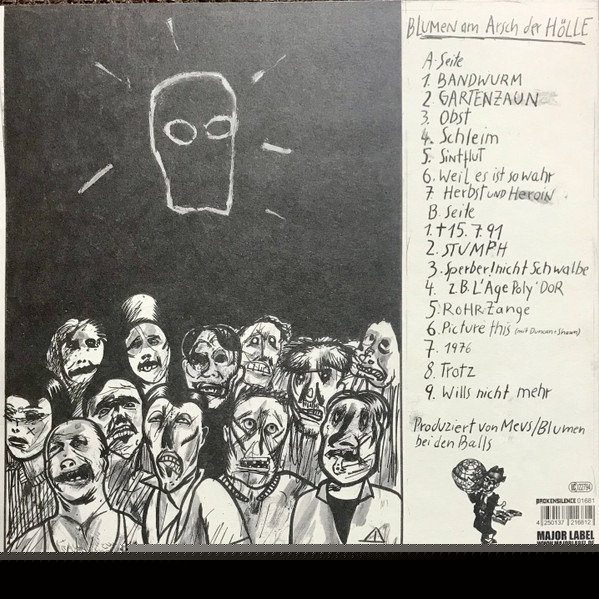 BLUMEN am Arsch der HÖLLE
A-Seite
1. BANDWURM
2. GARTENZAUN
3. Obst
4. Schleim
5. Sintflut
6. Weil es ist so wahr
7. Herbst UND Heroin
B. Seite
1. † 15. 7. 91
2. STUMPH
3. Sperber! nicht Schwalbe
4. z.B. L'Age Poly'DOR
5. ROHRZange
6. Picture this (mit Duncan + Shawn)
7. 1976
8. Trotz
9. Wills nicht mehr
Produziert von Mevs/Blumen
bei den Balls
LC 02794
BROKENSILENCE 01681
4 250137 216812
MAJOR LABEL
WWW.MAJORLABEL.DE